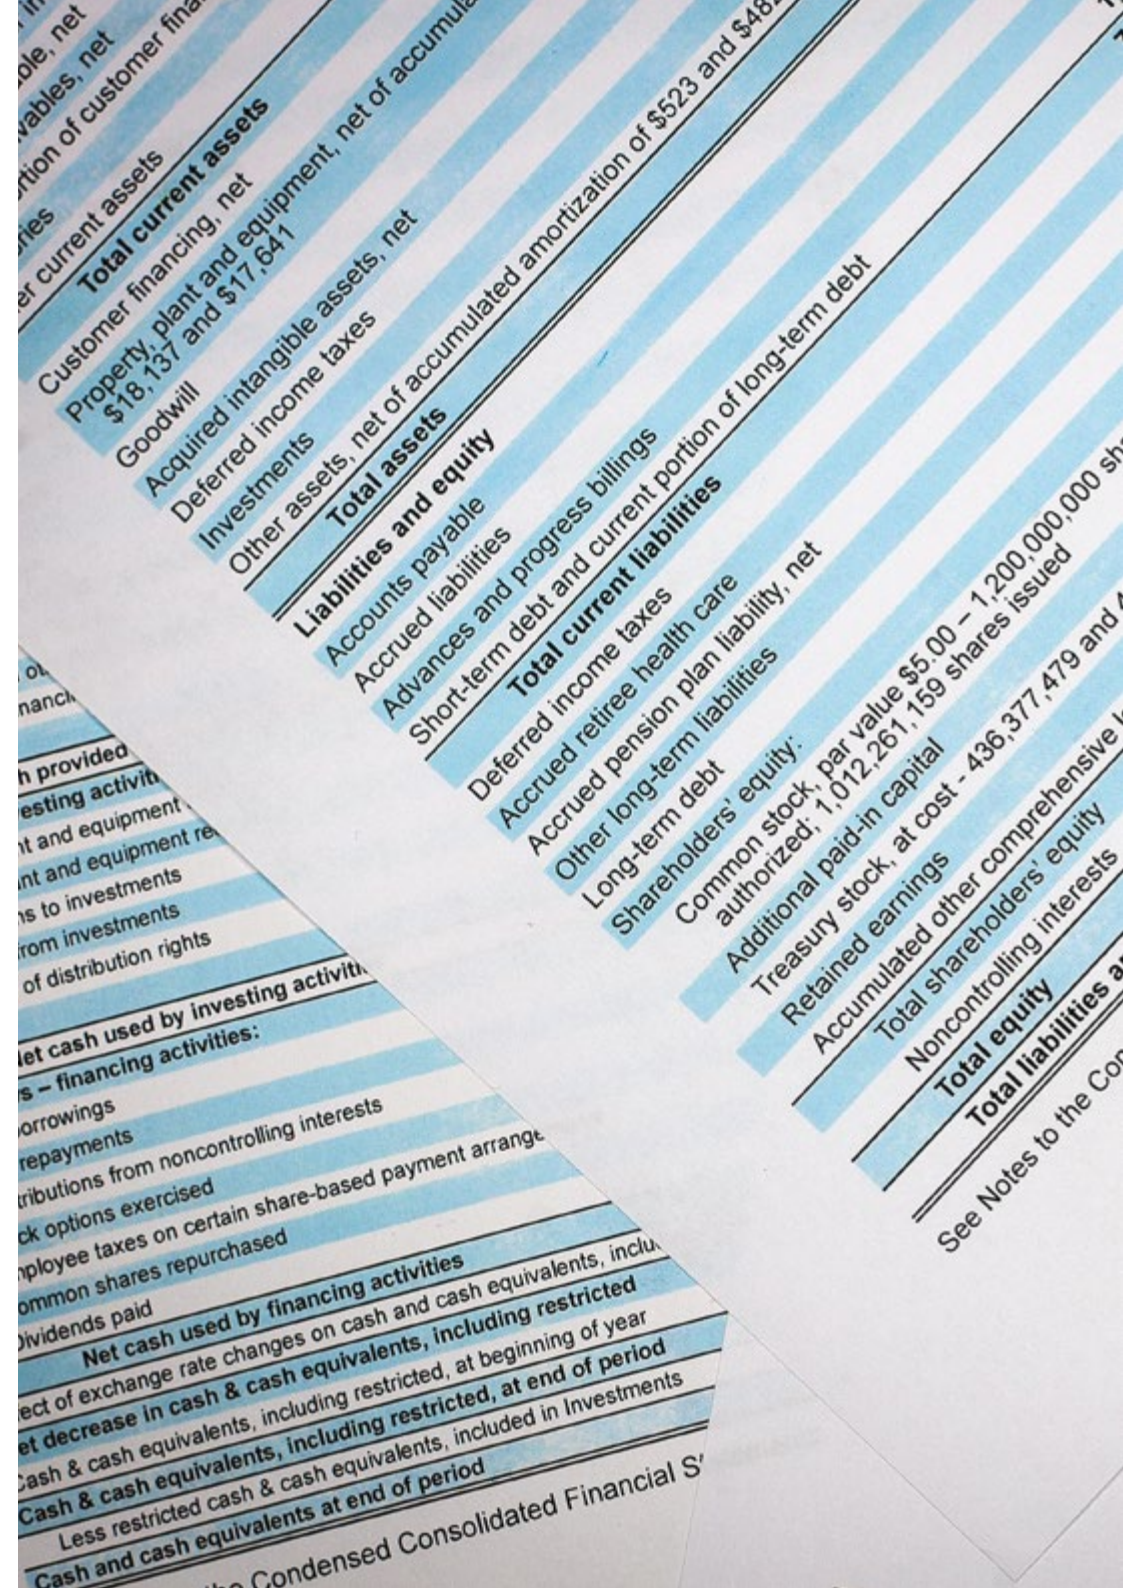 net
net
portion of customer
current assets
Total current assets
Customer financing, net
Property, plant and equipment, net of
$18,137 and $17,641
Goodwill
Acquired intangible assets, net
Deferred income taxes
Investments
Other assets, net of accumulated amortization of $523 and
Total assets
Liabilities and equity
Accounts payable
Accrued liabilities
Advances and progress billings
Short-term debt and current portion of long-term debt
Total current liabilities
Deferred income taxes
Accrued retiree health care
Accrued pension plan liability, net
Other long-term liabilities
Long-term debt
Shareholders' equity:
Common stock, par value $5.00 – 1,200,000,000
authorized; 1,012,261,159 shares issued
Additional paid-in capital
Treasury stock, at cost - 436,377,479 and
Retained earnings
Accumulated other comprehensive
Total shareholders' equity
Noncontrolling interests
Total equity
Total liabilities
See Notes to the
provided
and equipment
and equipment
to investments
from investments
of distribution rights
Net cash used by investing
– financing activities:
borrowings
repayments
from noncontrolling interests
options exercised
taxes on certain share-based payment
Common shares repurchased
Dividends paid
Net cash used by financing activities
of exchange rate changes on cash and cash equivalents,
decrease in cash & cash equivalents, including restricted
Cash & cash equivalents, including restricted, at beginning of year
Cash & cash equivalents, including restricted, at end of period
Less restricted cash & cash equivalents, included in Investments
Cash and cash equivalents at end of period
Condensed Consolidated Financial